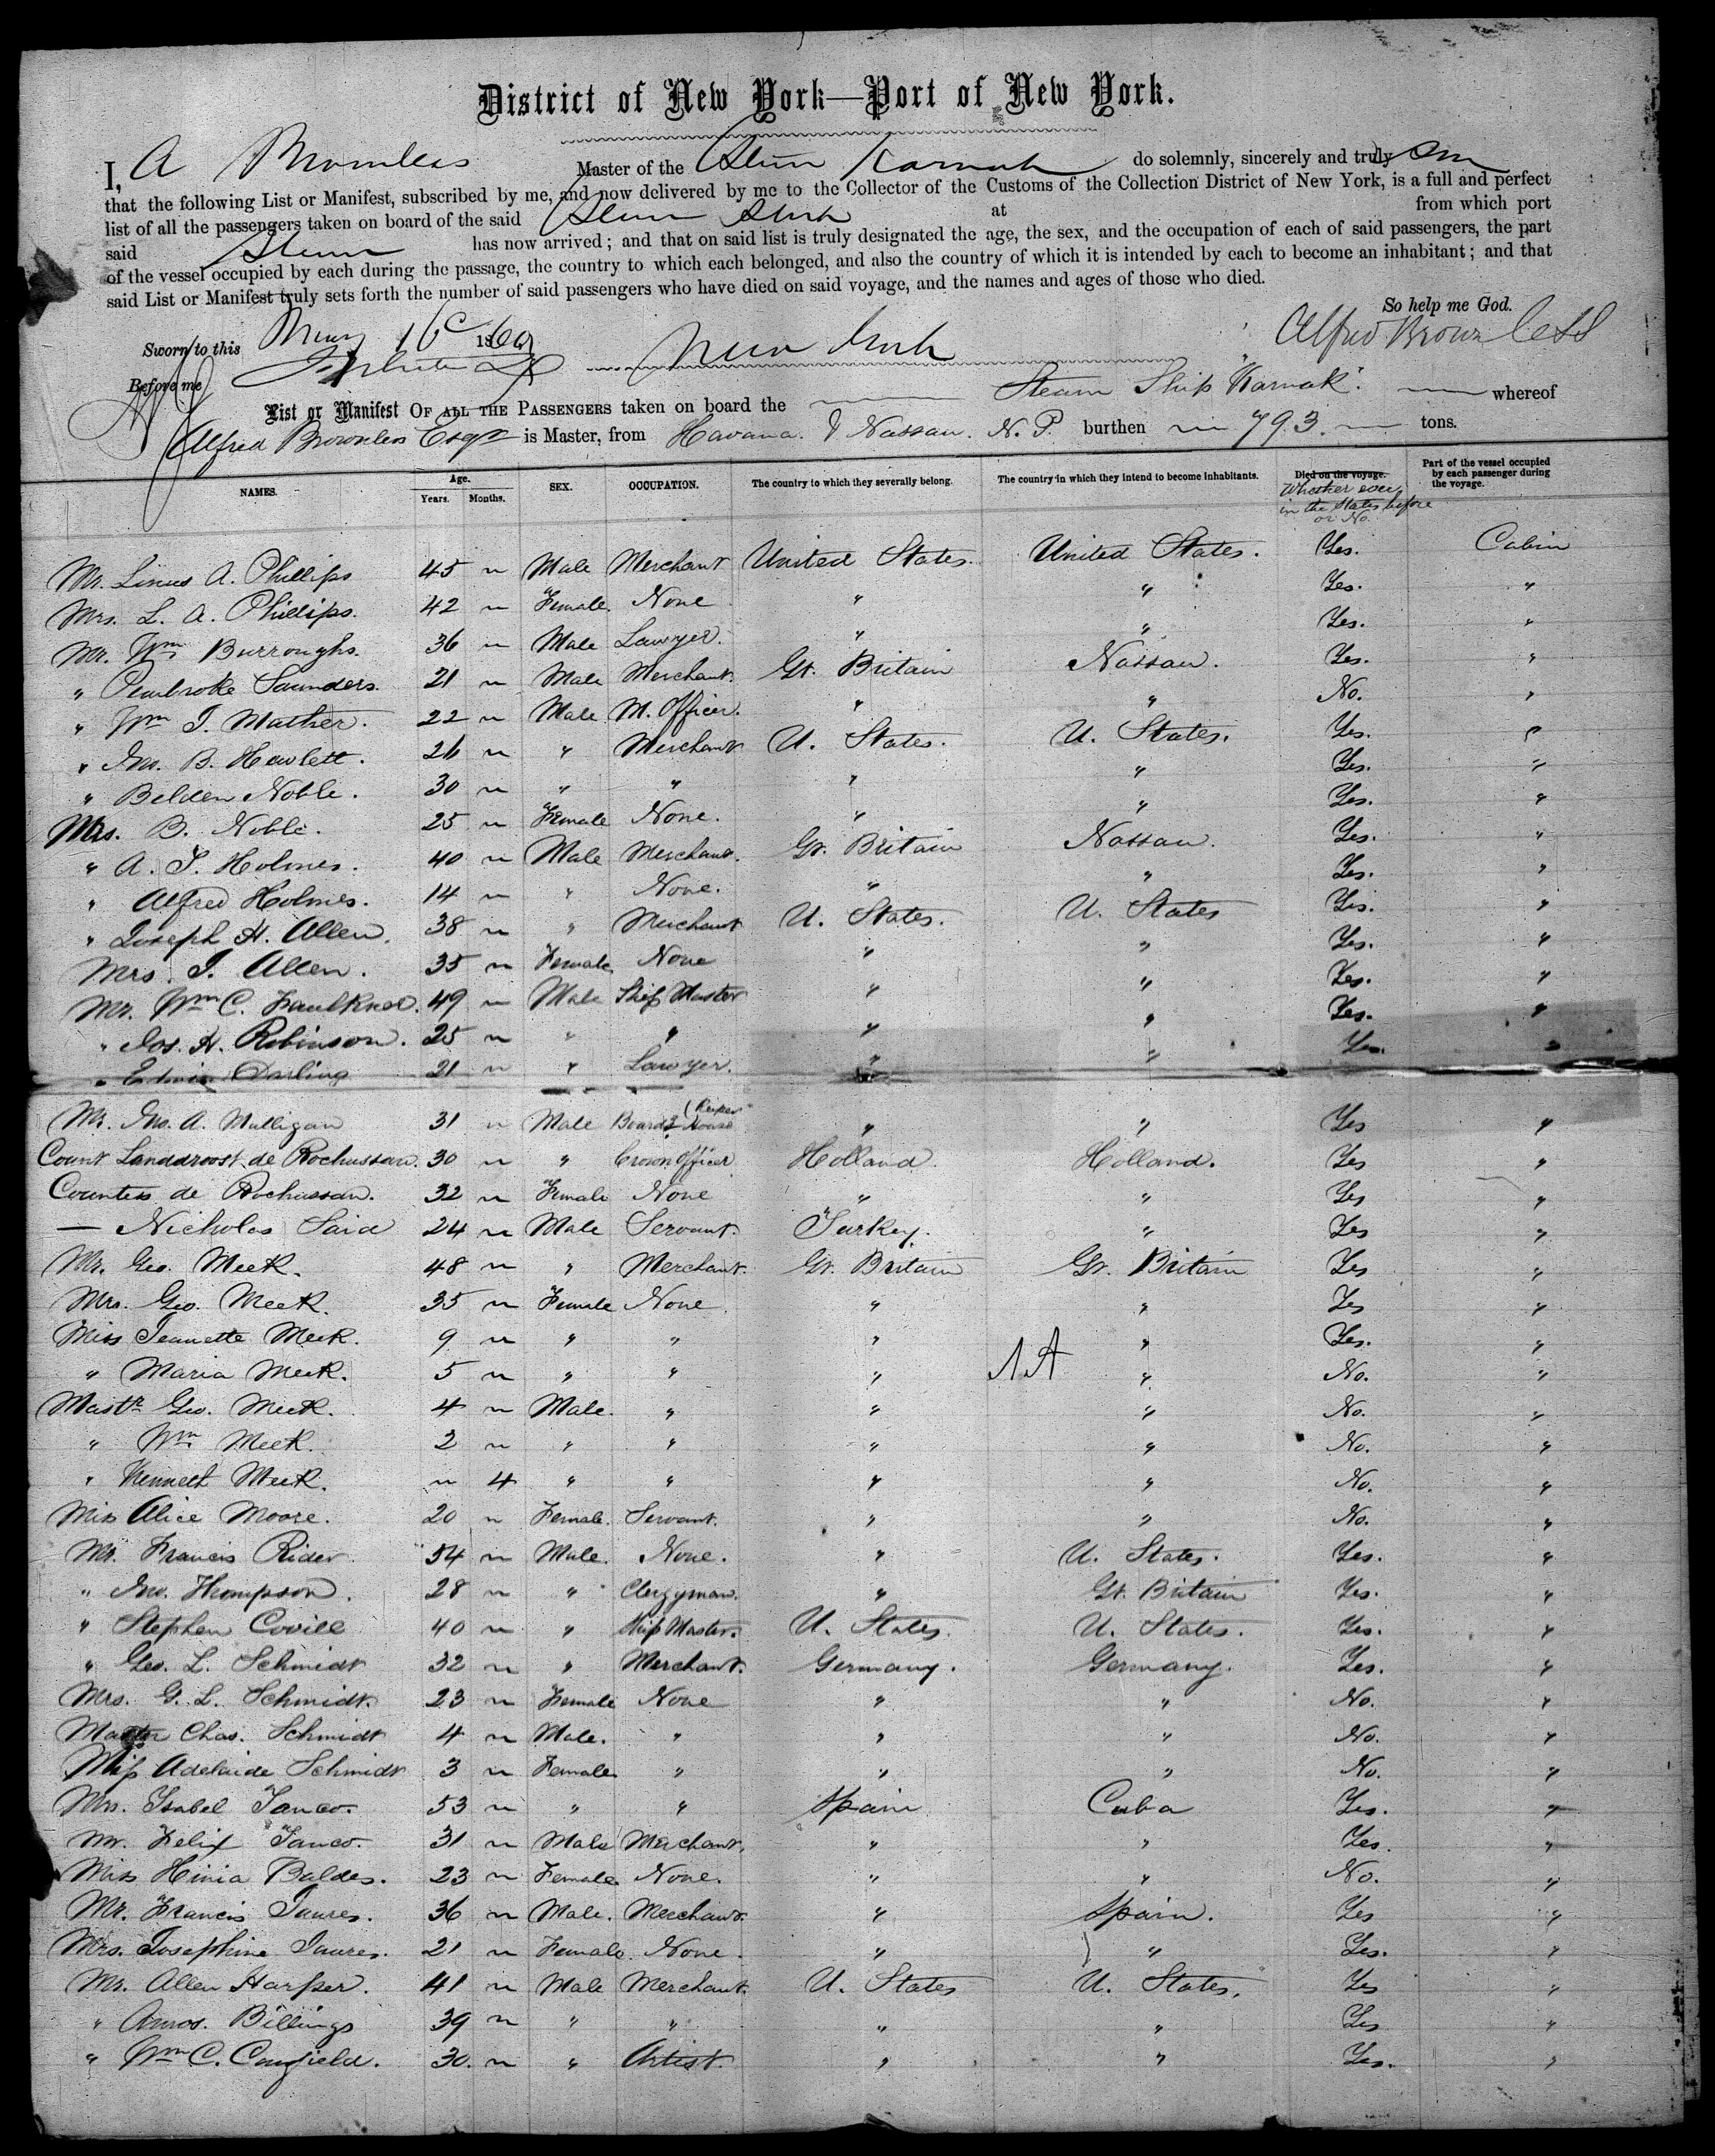 District of New York—Port of New York.
I, A Brownless Master of the Steam Karnak do solemnly, sincerely and truly
that the following List or Manifest, subscribed by me, and now delivered by me to the Collector of the Customs of the Collection District of New York, is a full and perfect
list of all the passengers taken on board of the said Steam at from which port
said Steam has now arrived; and that on said list is truly designated the age, the sex, and the occupation of each of said passengers, the part
of the vessel occupied by each during the passage, the country to which each belonged, and also the country of which it is intended by each to become an inhabitant; and that
said List or Manifest truly sets forth the number of said passengers who have died on said voyage, and the names and ages of those who died.
So help me God.
Sworn to this May 16 186 New York Alfred Brownless
Before me
List or Manifest OF ALL THE PASSENGERS taken on board the Steam Ship "Karnak". whereof
Alfred Brownless Esqr is Master, from Havana. & Nassau. N. P. burthen 793. tons.
NAMES. Age. Years. Months. SEX. OCCUPATION. The country to which they severally belong. The country in which they intend to become inhabitants. Died on the voyage. Whether ever in the States before or No. Part of the vessel occupied by each passenger during the voyage.
Mr. Linus A. Phillips 45 " Male Merchant United States. United States. Yes. Cabin
Mrs. L. A. Phillips. 42 " Female. None " " Yes. "
Mr. Wm Burroughs. 36 " Male Lawyer. " " Yes. "
" Pembroke Saunders. 21 " Male Merchant. Gt. Britain Nassau. Yes. "
" Wm T. Mather. 22 " Male. M. Officer. " " No. "
" Jno. B. Hewlett. 26 " " Merchant U. States. U. States. Yes. "
" Belden Noble. 30 " " " " " Yes. "
Mrs. B. Noble. 25 " Female None. " " Yes. "
" A. T. Holmes. 40 " Male Merchant. Gt. Britain Nassau. Yes. "
" Alfred Holmes. 14 " " None. " " Yes. "
" Joseph H. Allen. 38 " " Merchant U. States. U. States Yes. "
Mrs. J. Allen. 35 " Female None " " Yes. "
Mr. Wm C. Faulkner. 49 " Male Ship Master " " Yes. "
" Jos. H. Robinson. 25 " " " " " Yes. "
" Edwin Darling 21 " " Lawyer. " " Yes. "
Mr. Jno. A. Mulligan 31 " Male Boardg House (Keeper " " Yes "
Count Landdroost de Rochussan. 30 " " Crown Officer Holland. Holland. Yes "
Countess de Rochussan. 32 " Female None " " Yes "
— Nicholas Said 24 " Male Servant. Turkey. " Yes "
Mr. Geo. Meek. 48 " " Merchant. Gt. Britain Gt. Britain Yes "
Mrs. Geo. Meek. 35 " Female None " " Yes "
Miss Jeanette Meek. 9 " " " " " Yes. "
" Maria Meek. 5 " " " " " No. "
Mastr Geo. Meek. 4 " Male. " " " No. "
" Wm Meek. 2 " " " " " No. "
" Kenneth Meek. " 4 " " " " No. "
Miss Alice Moore. 20 " Female. Servant. " " No. "
Mr. Francis Rider 54 " Male. None. " U. States. Yes. "
" Jno. Thompson. 28 " " Clergyman. " Gt. Britain Yes. "
" Stephen Covill 40 " " Ship Master. U. States. U. States. Yes. "
" Geo. L. Schmidt 32 " " Merchant. Germany. Germany. Yes. "
Mrs. G. L. Schmidt. 23 " Female None " " No. "
Master Chas. Schmidt 4 " Male. " " " No. "
Miss Adelaide Schmidt 3 " Female " " " No. "
Mrs. Isabel Tanco. 53 " " " Spain Cuba Yes. "
Mr. Felix Tanco. 31 " Male Merchant. " " Yes. "
Miss Hinia Baldes. 23 " Female. None. " " No. "
Mr. Francis Jaures. 36 " Male. Merchant. " Spain. Yes "
Mrs. Josephine Jaures. 21 " Female. None. " " Yes. "
Mr. Allen Harper. 41 " Male Merchant. U. States U. States. Yes "
" Amos. Billings 39 " " " " " Yes "
" Wm C. Canfield. 30. " " Artist. " " Yes. "